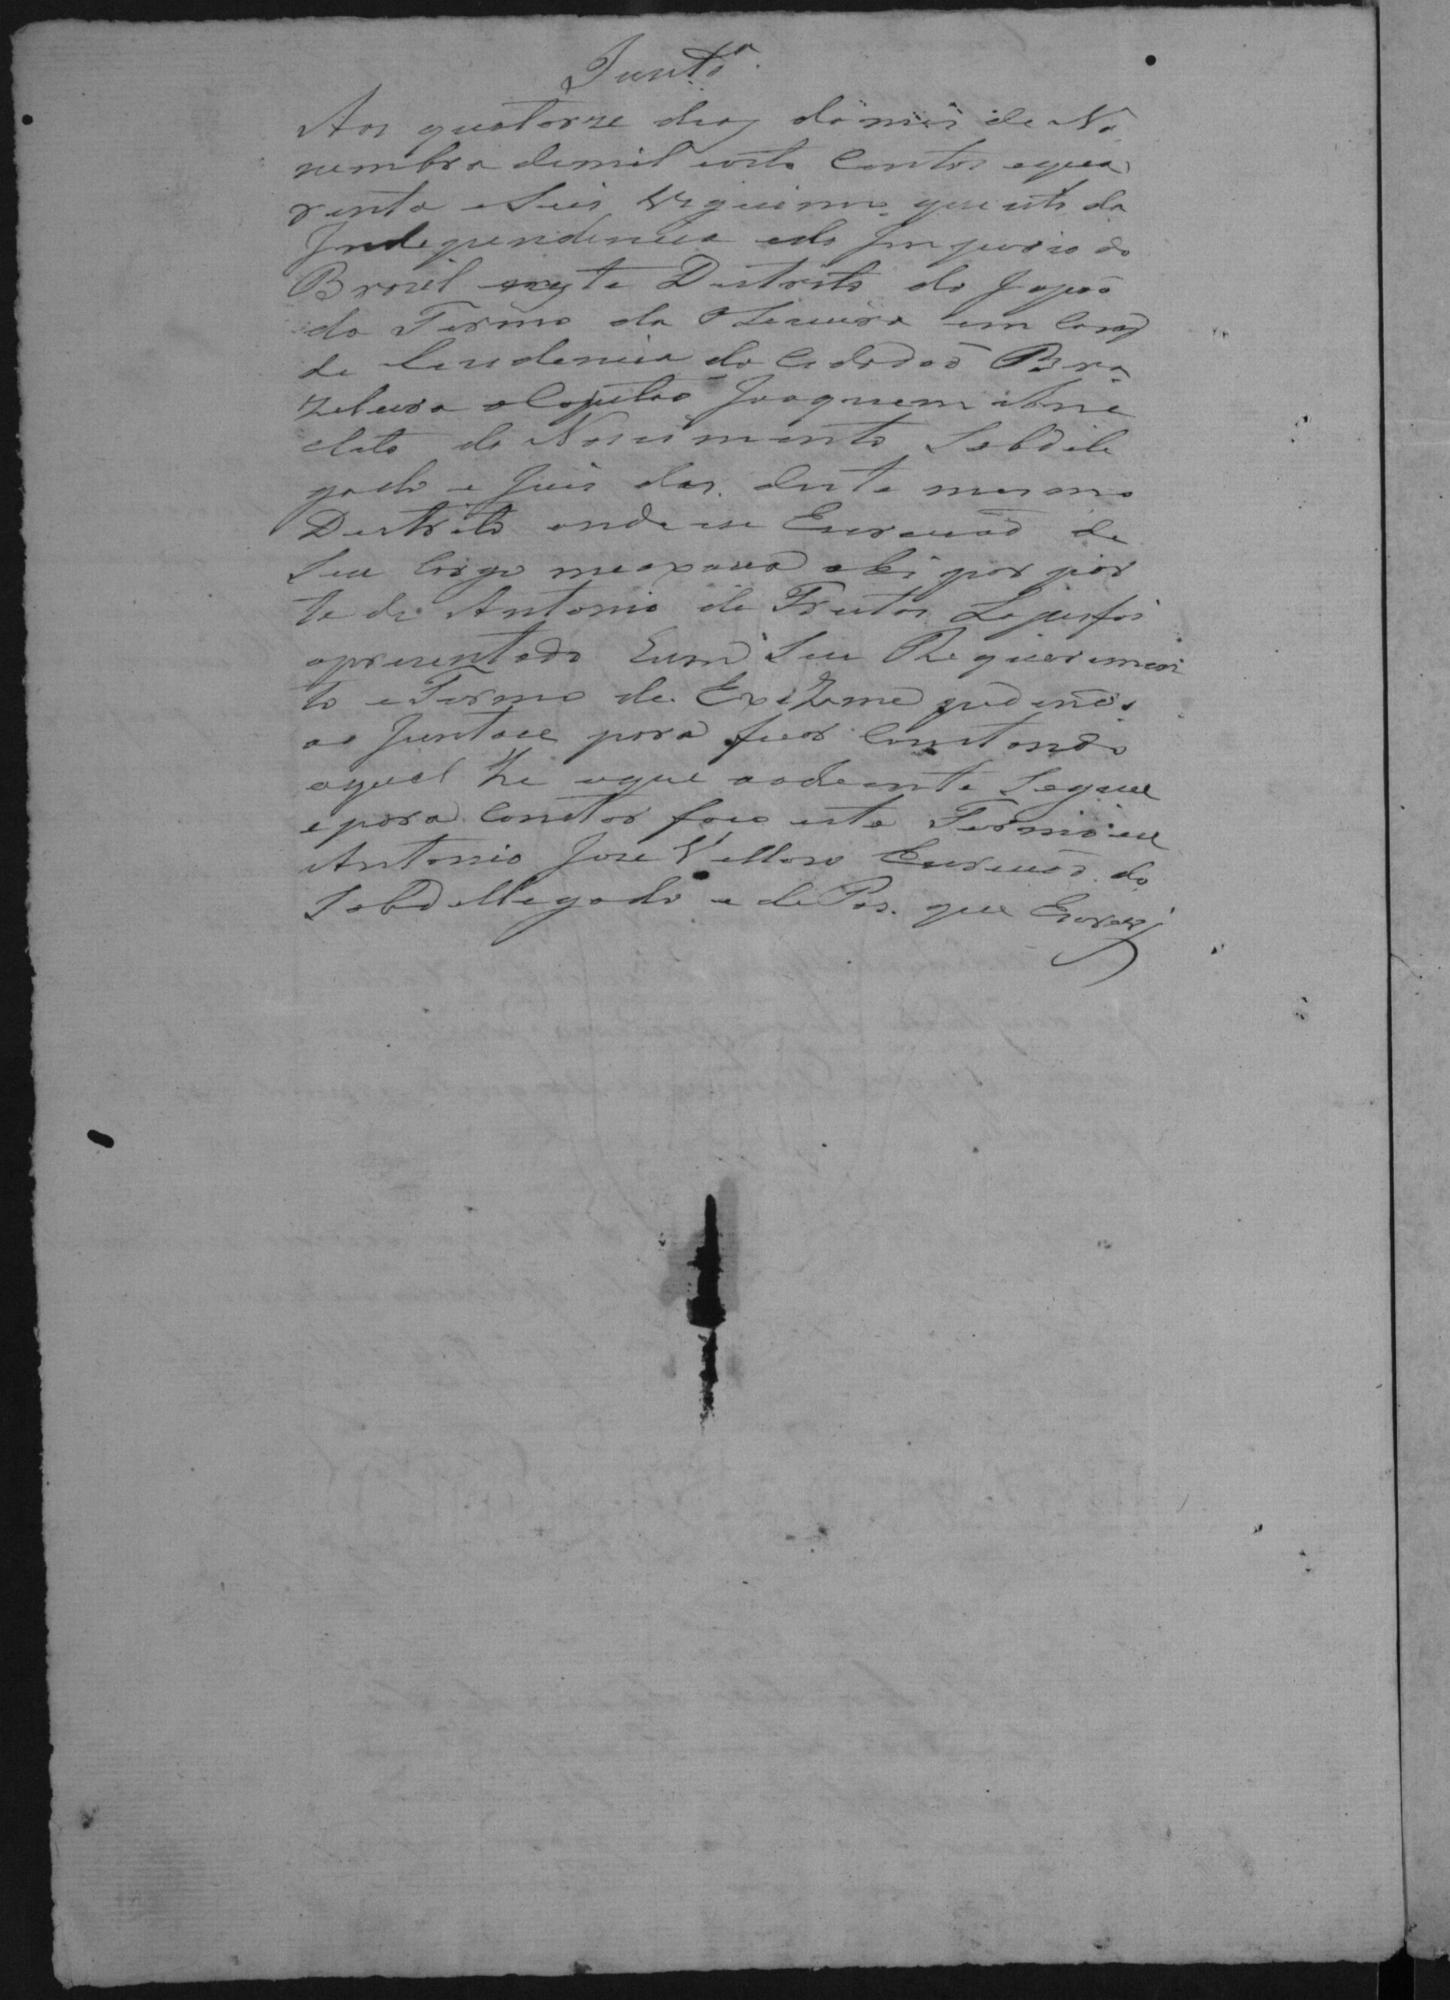 Junta
Aos quatorze dias do mes de No
vembro de mil oito Centos e qua
renta e Seis Vigecimo quinto da
Independencia e do Imperio do
Brazil neste Distrito do Japaõ
do Termo da Oliveira em Casas
de Rezidencia do Cidadaõ Bra
zeleiro o Capitaõ Joaquim
do Nascimento Sobdele
gado e Juis das deste mesmo
Destrito onde eu Escrivaõ de
Seu Cargo me axava ahi por par
te de Antonio de Freitas foi
apresentado hum Seu Requerimen
to e Termo de Exzame pedindo
ao Juntase para ficar Constando
o qual he o que ao deante Segue
e para Constar faco este Termo eu
Antonio Jose Vellozo Escrivaõ do
Sobdellegado e de Pas. que Escrevj